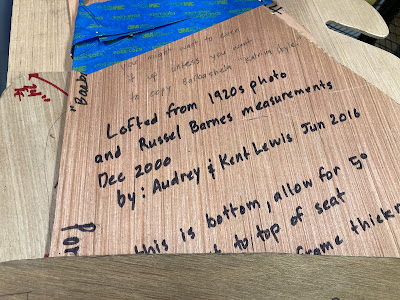 3M
might want to even
it up unless you want
to copy
Lofted from 1920s photo
and Russel Barnes measurements
Dec 2000
by: Audrey & Kent Lewis Jun 2016
this is bottom, allow for 5°
to top of seat
frame thickn
Por